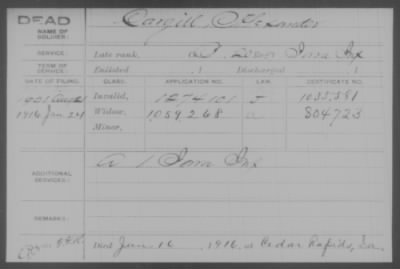 DEAD
NAME OF SOLDIER:
Cargill, Alexander
SERVICE:
Late rank, Iowa Inf
TERM OF SERVICE:
Enlisted , 1 Discharged , 1
DATE OF FILING. CLASS. APPLICATION NO. LAW. CERTIFICATE NO.
Invalid, 1274101
1916 Jan 24 Widow, 1,059,268 804723
Minor,
ADDITIONAL SERVICES:
A 1 Iowa Inf
REMARKS:
Died Jan 16, 1916, at Cedar Rapids, Ia.